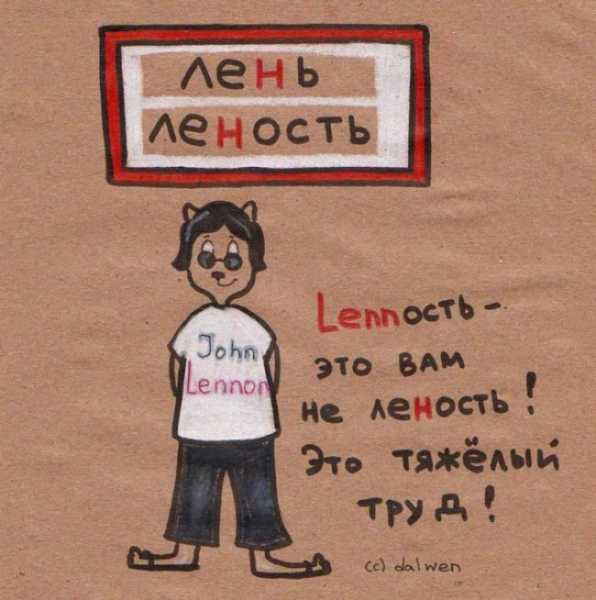 лень
леность
John
Lennon
Lennость -
это вам
не леность!
Это тяжёлый
труд!
(c) dalwen